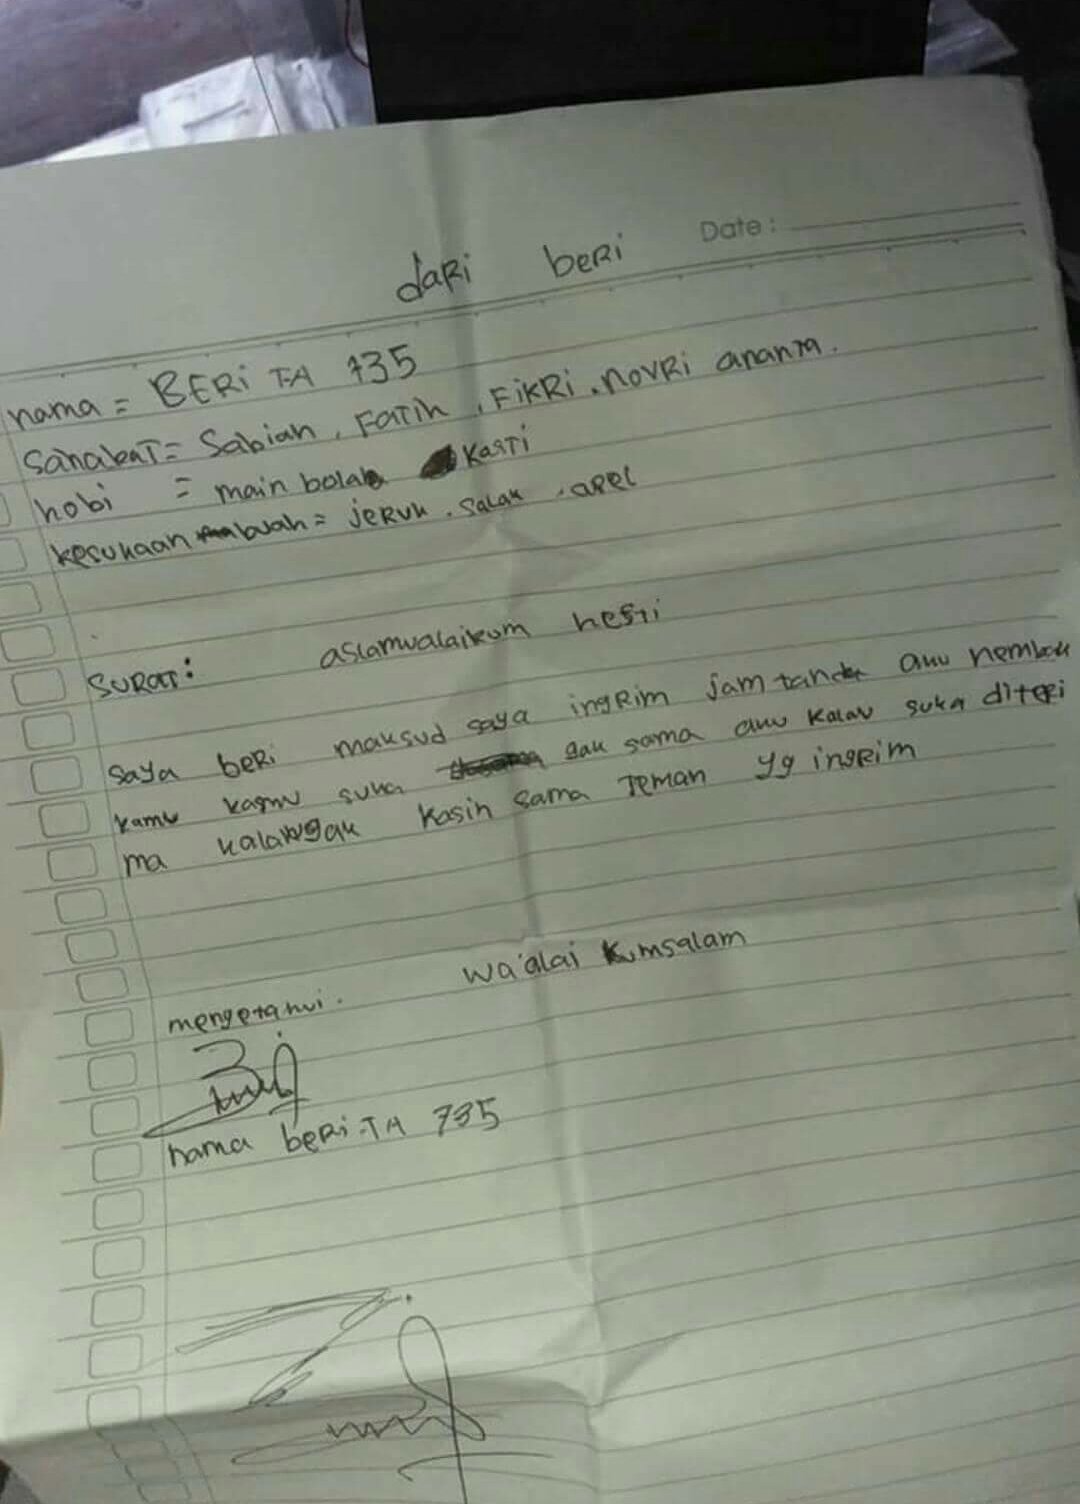 Date:
dari beri
nama = BERi T.A 735
sanabat = Sabiah, Fatih, FIKRI. NOVRI ananta.
hobi = main bola kasti
kesukaan buah = jeruk. salak. apel
SURAT: aslamwalaikum hesti
saya beri maksud saya ingrim jam tand auu nembak
kamu kagmu suka gak sama auu kalau suka diteri
ma kalawgak kasih sama teman yg ingrim
wa'alai kumsalam
mengetahui.
nama beri.TA 735